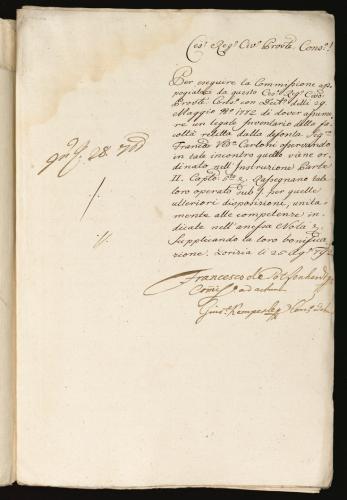 Ces: Reg: Cap: Provle Cons:!
Per eseguire la Commissione ap,
pogiatale da questo Ces: Reg: Cap:
Provle Cons: con Decto delli 29
Maggio 1772 di dover assume,
re un legale Inventario della fa,
coltà relitta dalla defonta Sigra
Franca Va Carloni osservando
in tale incontro quello viene or,
dinato nell' Instruzione Parte
II. Caplo 2. Rassegnano tale
loro operato sub 1. per quelle
ulteriori disposizioni, unita,
mente alle competenze in,
dicate nell' annessa Nota 2.
Supplicando la loro bonifica,
zione. Gorizia li 26
Francesco de
Comis ad actum
28.